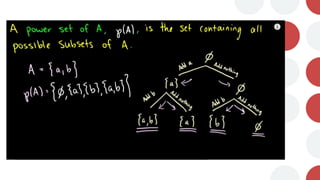 A power set of A, p(A), is the set containing all
possible subsets of A.
A = {a,b}
p(A)={∅,{a},{b},{a,b}}
∅
Add a
Add nothing
{a}
∅
Add b
Add nothing
Add b
Add nothing
{a,b}
{a}
{b}
∅